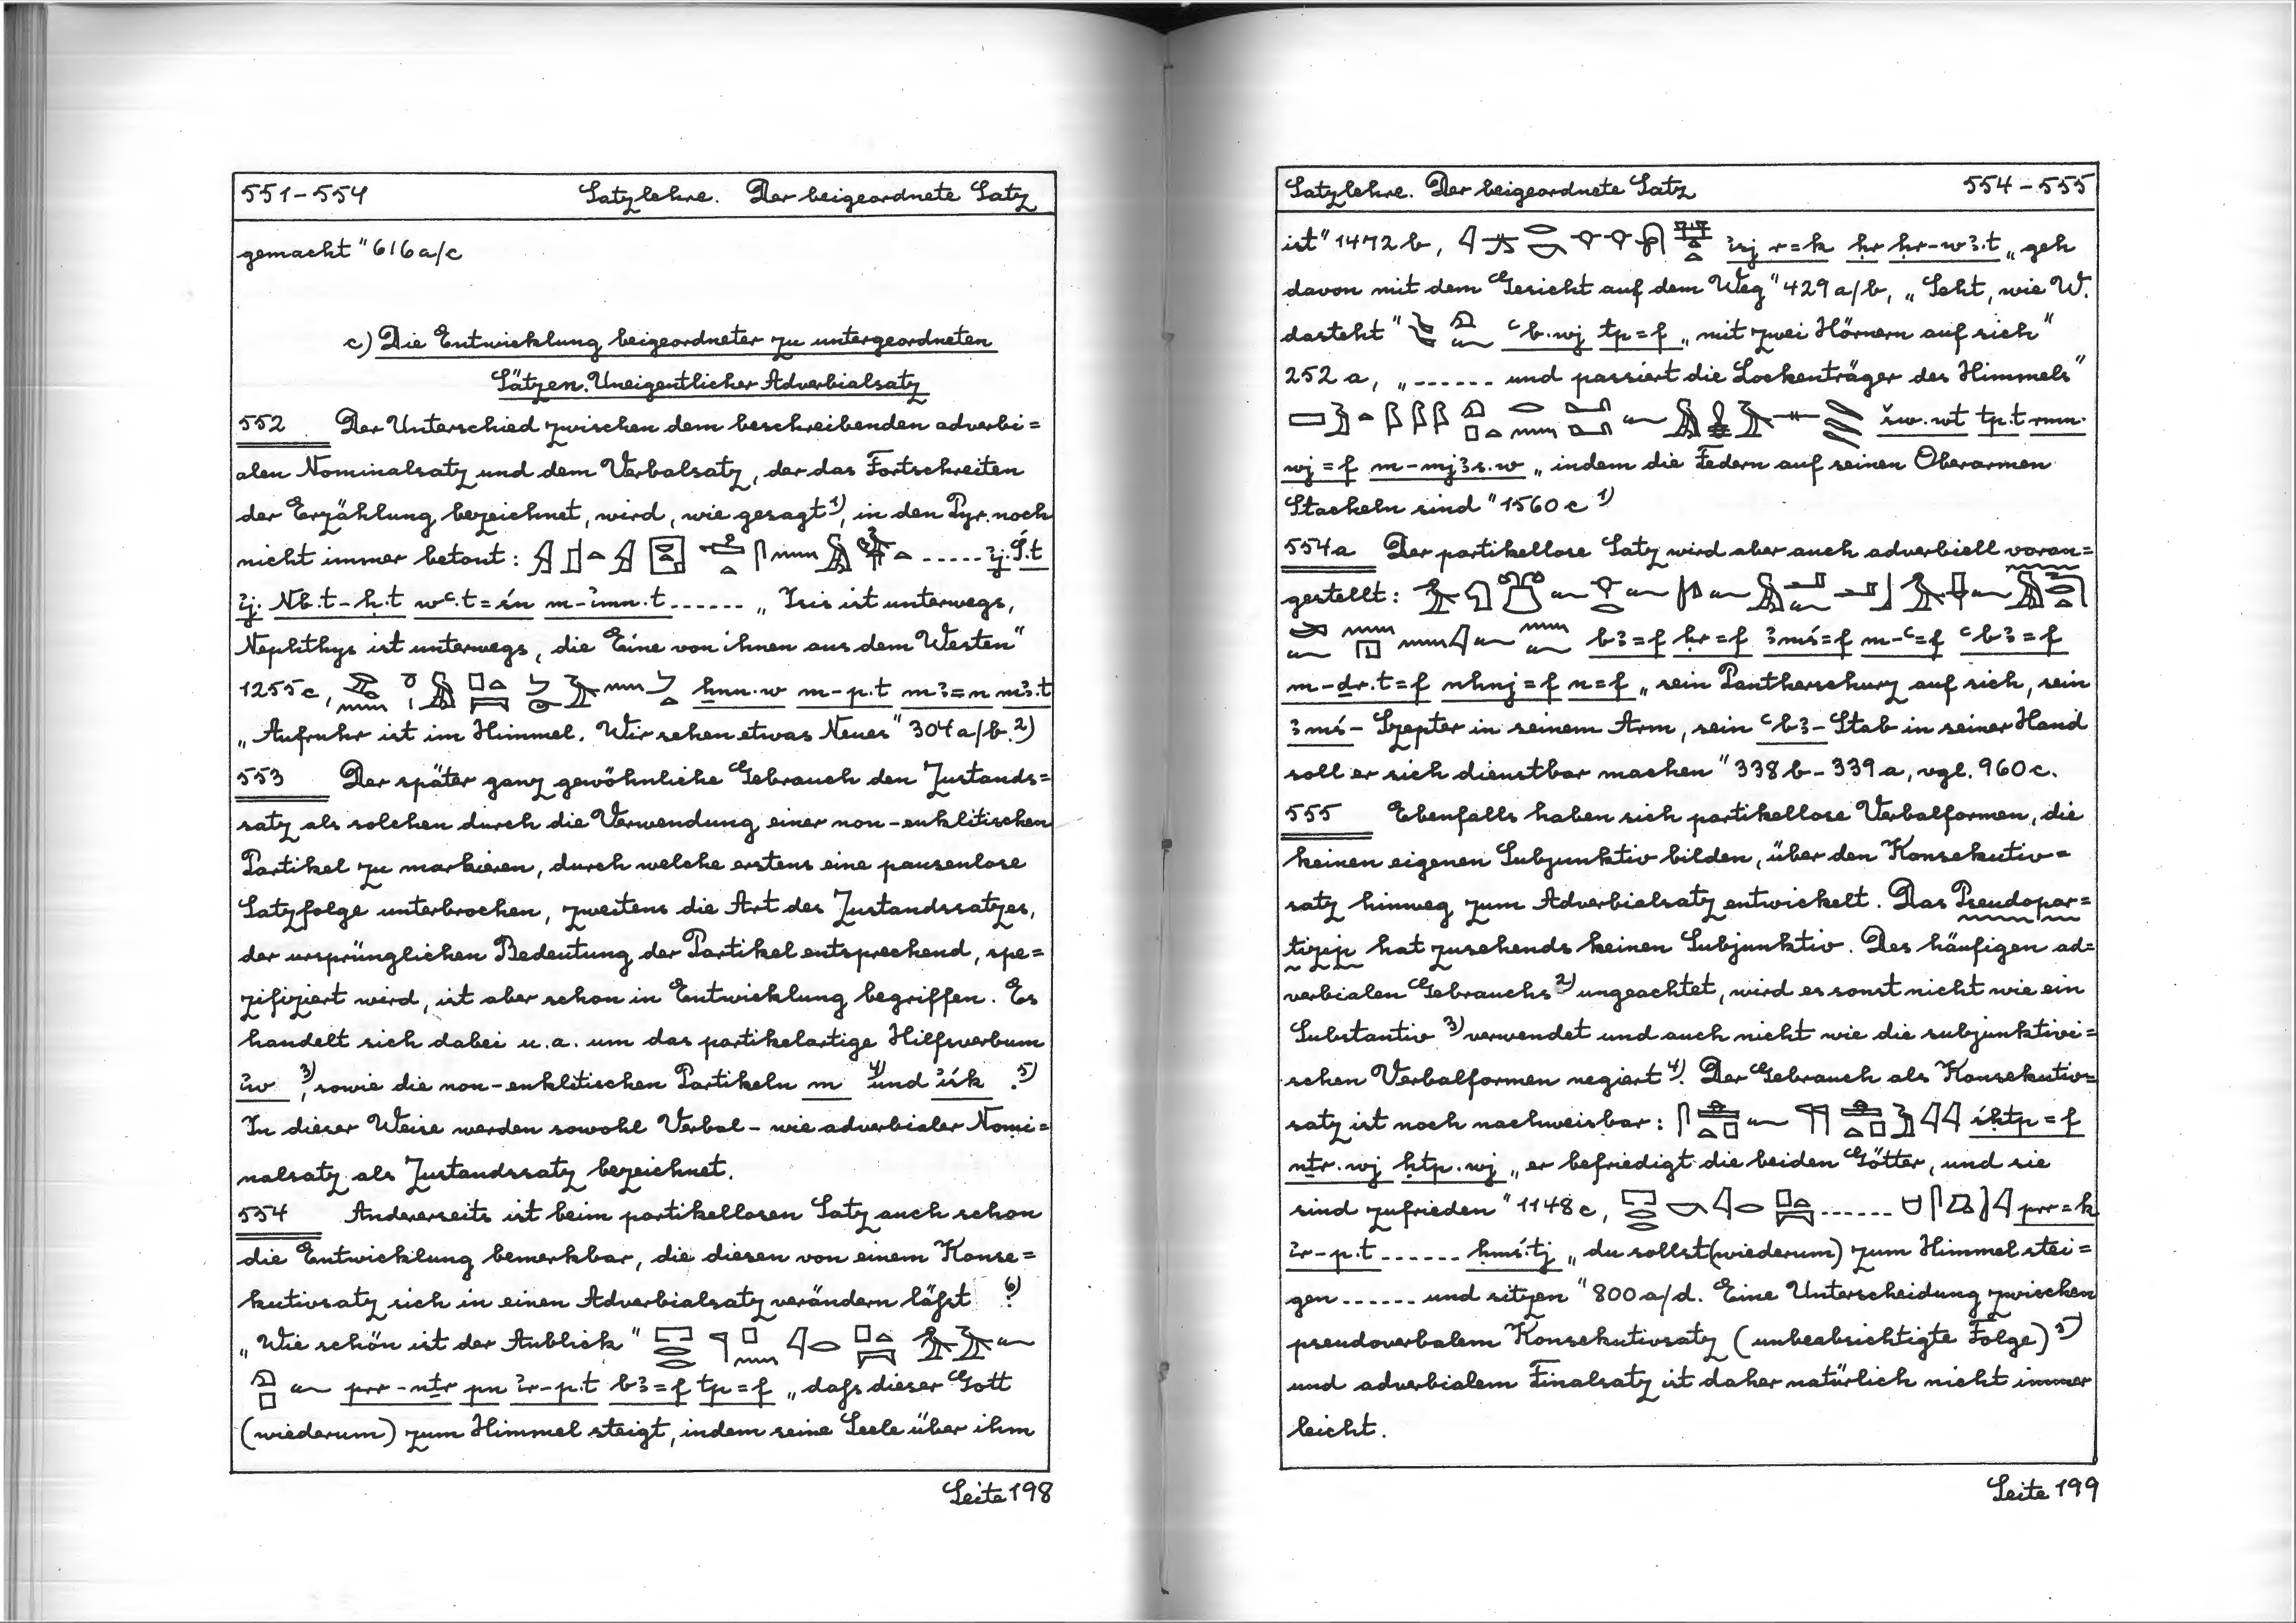 551-554 Satzlehre. Der beigeordnete Satz
gemacht" 616a/c
c) Die Entwicklung beigeordneter zu untergeordneten
Sätzen. Uneigentlicher Adverbialsatz
552 Der Unterschied zwischen dem beschreibenden adverbi=
alen Nominalsatz und dem Verbalsatz, der das Fortschreiten
der Erzählung bezeichnet, wird, wie gesagt 1), in den Pyr. noch
nicht immer betont: ...... ꞽj. Ꞽś.t
ꞽj. Nb.t-ḥ.t wꜥ.t=śn m-ꞽmn.t ...... „Isis ist unterwegs,
Nephthys ist unterwegs, die Eine von ihnen aus dem Westen"
1255c, ẖnn.w m-p.t mꜣ=n mꜣ.t
„Aufruhr ist im Himmel. Wir sehen etwas Neues" 304a/b. 2)
553 Der später ganz gewöhnliche Gebrauch den Zustands=
satz als solchen durch die Verwendung einer non-enklitischen
Partikel zu markieren, durch welche erstens eine pausenlose
Satzfolge unterbrochen, zweitens die Art des Zustandssatzes,
der ursprünglichen Bedeutung der Partikel entsprechend, spe=
zifiziert wird, ist aber schon in Entwicklung begriffen. Es
handelt sich dabei u.a. um das partikelartige Hilfsverbum
ꞽw 3), sowie die non-enklitischen Partikeln m 4) und ꞽśk 5).
In dieser Weise werden sowohl Verbal- wie adverbialer Nomi=
nalsatz als Zustandssatz bezeichnet.
554 Andererseits ist beim partikellosen Satz auch schon
die Entwicklung bemerkbar, die diesen von einem Konse=
kutivsatz sich in einen Adverbialsatz verändern läßt 6):
„Wie schön ist der Anblick"
prr-nṯr pn ꞽr-p.t bꜣ=f tp=f „daß dieser Gott
(wiederum) zum Himmel steigt, indem seine Seele über ihm
Seite 198
Satzlehre. Der beigeordnete Satz 554-555
ist" 1472b, ꞽzj r=k ḥr ḥr-wꜣ.t „geh
davon mit dem Gesicht auf dem Weg" 429a/b, „Seht, wie W.
dasteht" ꜥb.wj tp=f „mit zwei Hörnern auf sich"
252a, „...... und passiert die Lockenträger des Himmels"
šw.wt tp.t rmn.
wj=f m-mjꜣs.w „indem die Federn auf seinen Oberarmen
Stacheln sind" 1560c 1)
554a Der partikellose Satz wird aber auch adverbiell voran=
gestellt:
bꜣ=f ḥr=f ꜣmś=f m-ꜥ=f ꜥbꜣ=f
m-ḏr.t=f nhnj=f n=f „sein Pantherschurz auf sich, sein
ꜣmś-Szepter in seinem Arm, sein ꜥbꜣ-Stab in seiner Hand
soll er sich dienstbar machen" 338b-339a, vgl. 960c.
555 Ebenfalls haben sich partikellose Verbalformen, die
keinen eigenen Subjunktiv bilden, über den Konsekutiv=
satz hinweg zum Adverbialsatz entwickelt. Das Pseudopar=
tizip hat zusehends keinen Subjunktiv. Des häufigen ad=
verbialen Gebrauchs 2) ungeachtet, wird es sonst nicht wie ein
Substantiv 3) verwendet und auch nicht wie die subjunktivi=
schen Verbalformen negiert 4). Der Gebrauch als Konsekutiv=
satz ist noch nachweisbar: śḥtp=f
nṯr.wj ḥtp.wj „er befriedigt die beiden Götter, und sie
sind zufrieden" 1148c, ...... prr=k
ꞽr-p.t ...... ḥmś.tj „du sollst (wiederum) zum Himmel stei=
gen ...... und sitzen" 800a/d. Eine Unterscheidung zwischen
pseudoverbalem Konsekutivsatz (unbeabsichtigte Folge) 5)
und adverbialem Finalsatz ist daher natürlich nicht immer
leicht.
Seite 199